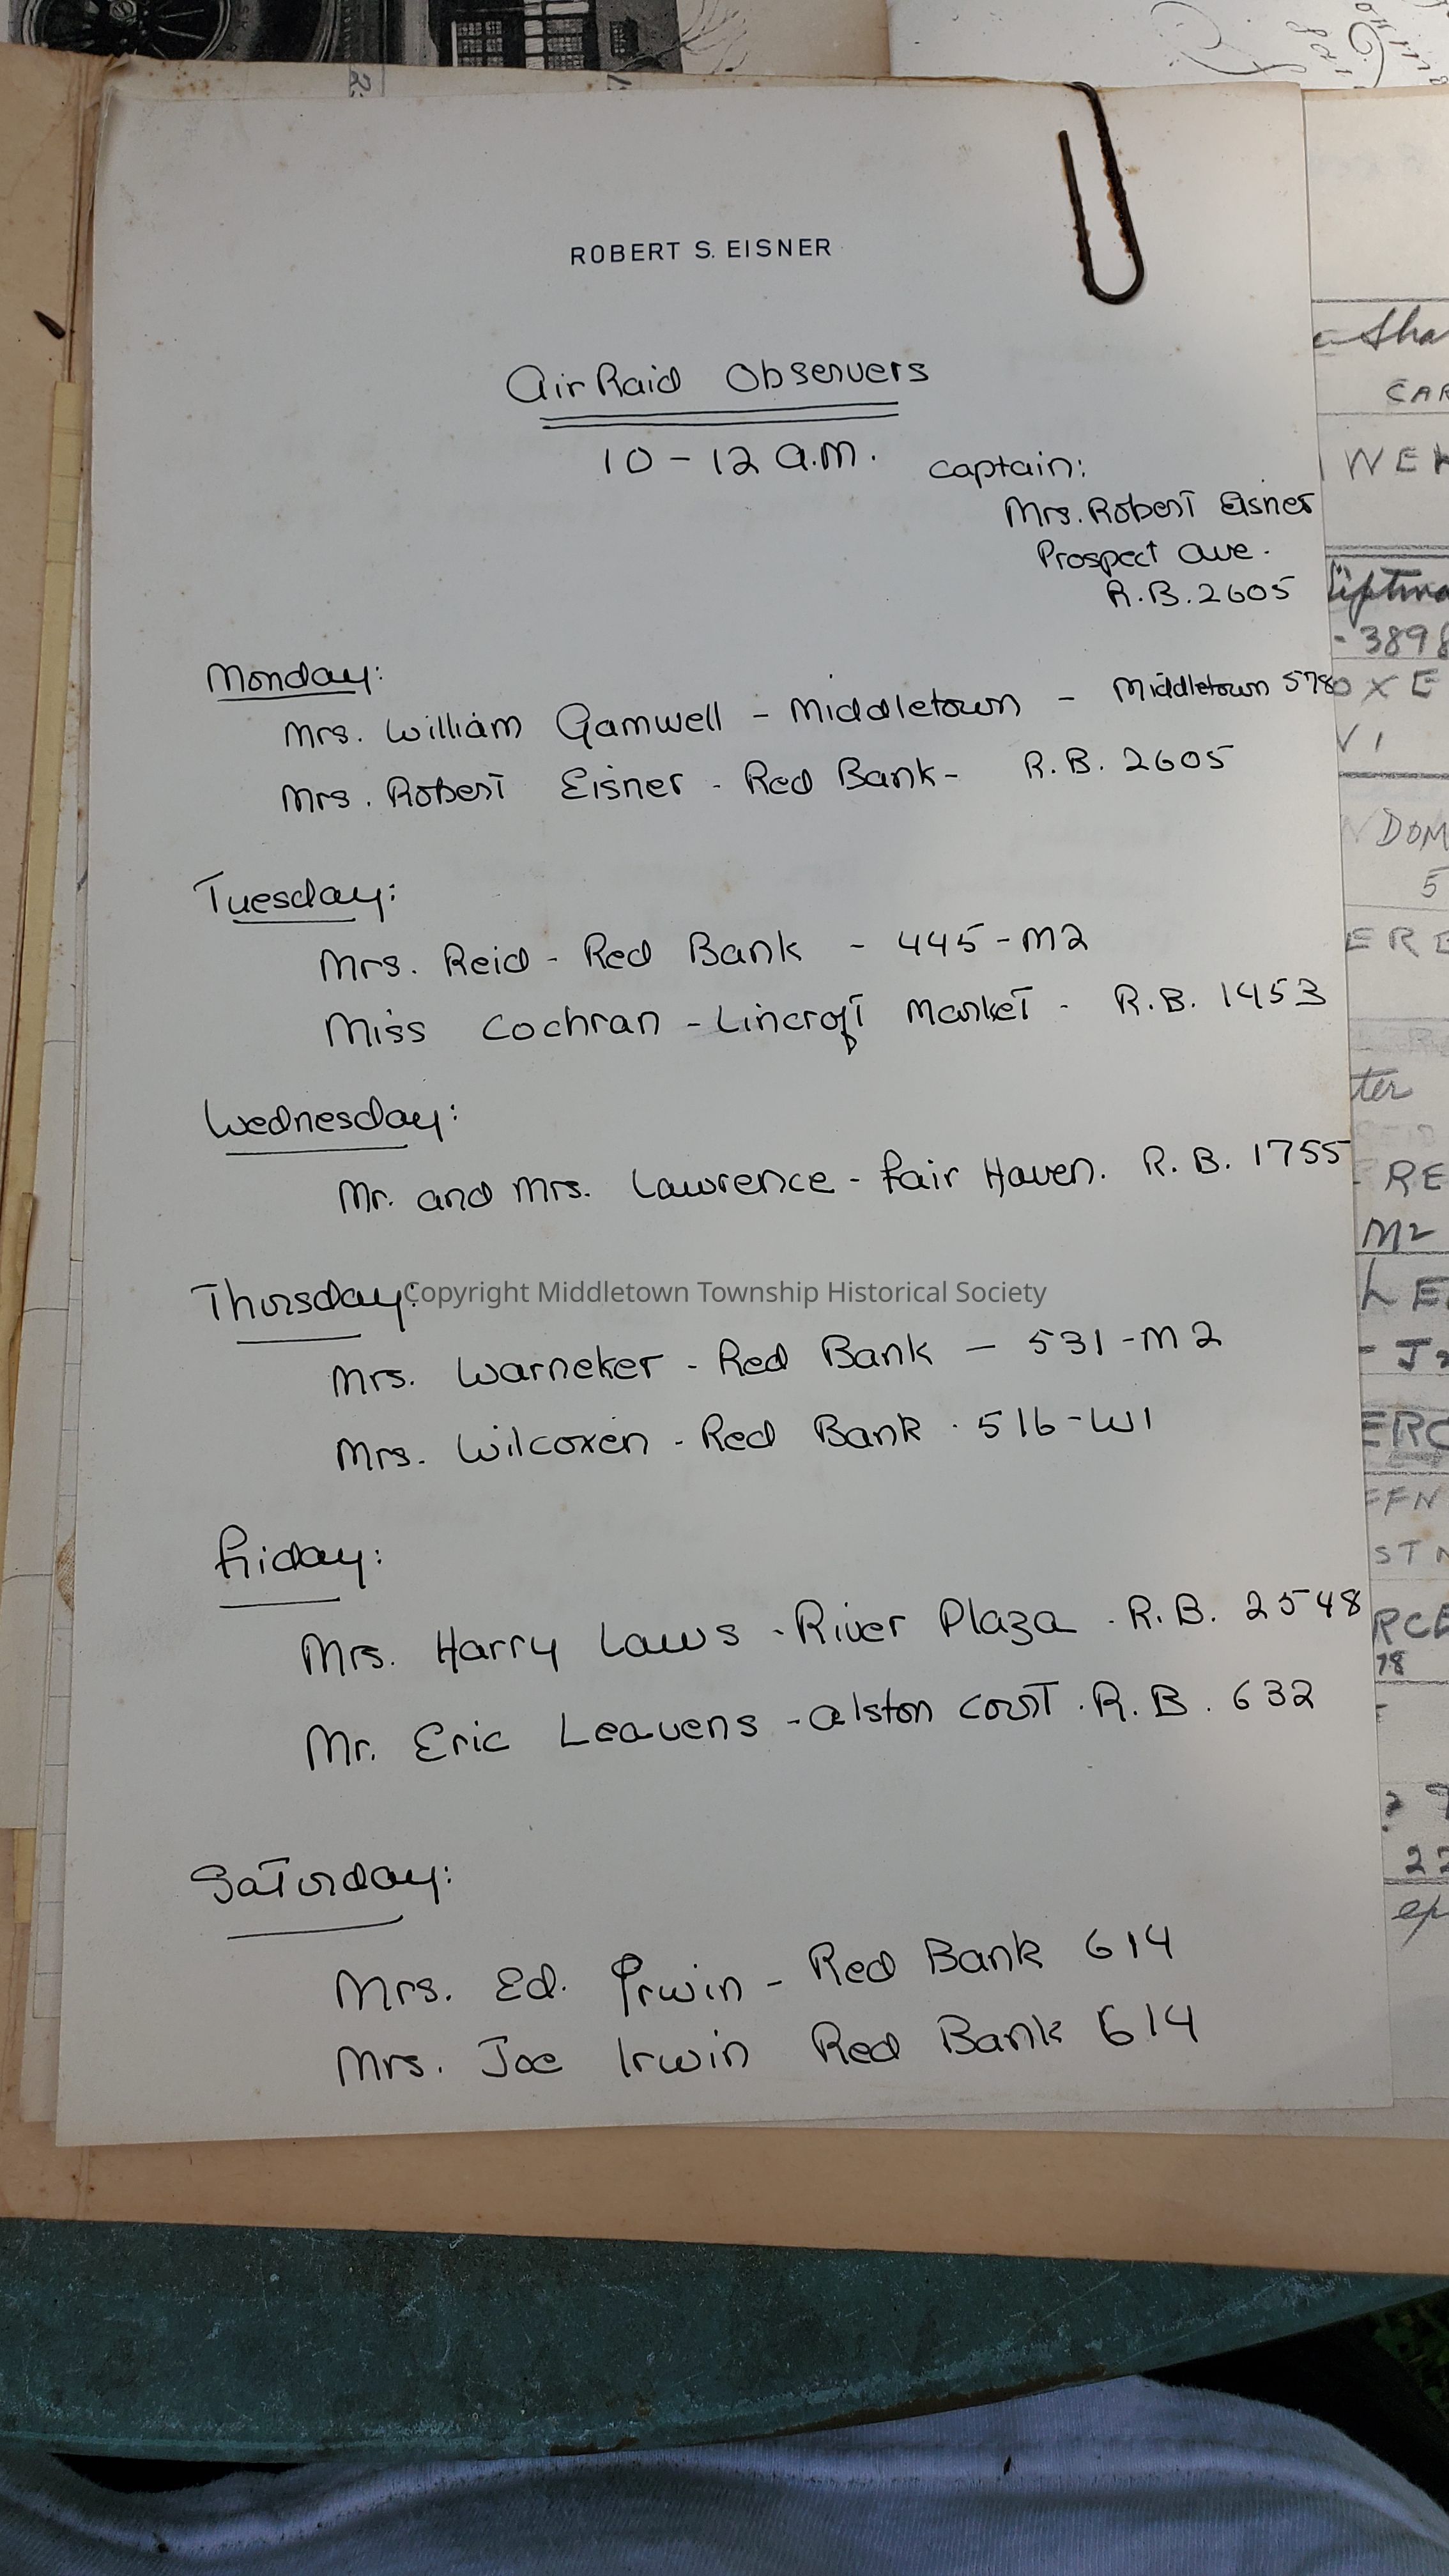 ROBERT S. EISNER
Air Raid Observers
10 - 12 a.m.
Captain:
Mrs. Robert Eisner
Prospect ave.
R.B. 2605
Monday:
Mrs. William Gamwell - Middletown - Middletown 5780
Mrs. Robert Eisner - Red Bank - R.B. 2605
Tuesday:
Mrs. Reid - Red Bank - 445-M2
Miss Cochran - Lincroft Market - R.B. 1453
Wednesday:
Mr. and Mrs. Lawrence - Fair Haven. R.B. 1755
Thursday:
Copyright Middletown Township Historical Society
Mrs. Warneker - Red Bank - 531-M2
Mrs. Wilcoxen - Red Bank - 516-W1
Friday:
Mrs. Harry Laws - River Plaza - R.B. 2548
Mr. Eric Leavens - Alston Court. R.B. 632
Saturday:
Mrs. Ed. Irwin - Red Bank 614
Mrs. Joe Irwin Red Bank 614
CAR
WEH
3898
DOM
5
ERE
ter
RE
M2
ERC
FFN
RCE
78